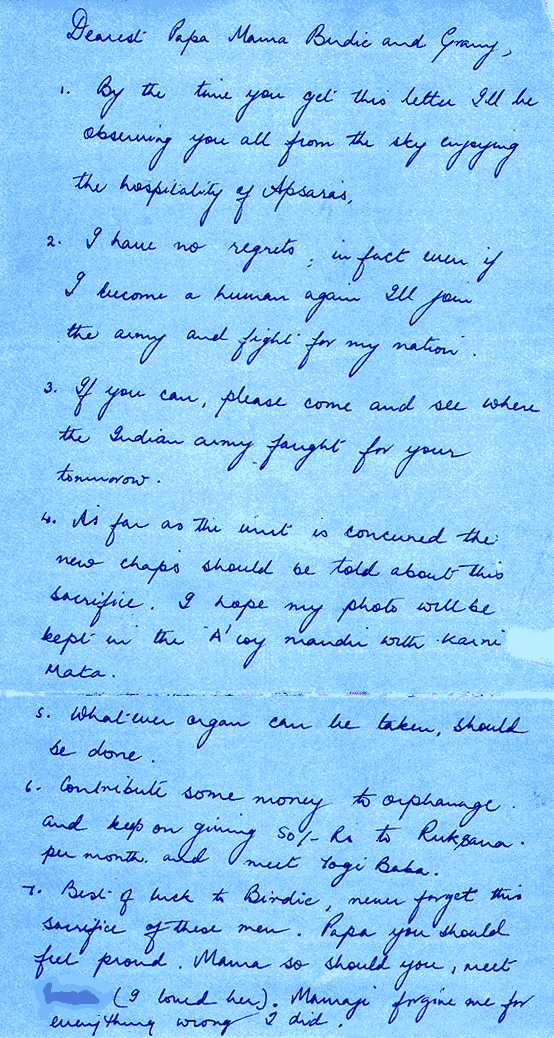 Dearest Papa Mama Birdie and Granny,
1. By the time you get this letter I'll be
observing you all from the sky enjoying
the hospitality of Apsaras.
2. I have no regrets, in fact even if
I become a human again I'll join
the army and fight for my nation.
3. If you can, please come and see where
the Indian army faught for your
tommorow.
4. As far as the unit is concured the
new chaps should be told about this
sacrifice. I hope my photo will be
kept in the 'A' coy mandir with Karni
Mata.
5. Whatever organ can be taken, should
be done.
6. Contribute some money to orphanage.
and keep on giving 50/- Rs to Ruksana.
per month. and meet Yogi Baba.
7. Best of luck to Birdie, never forget this
sacrifice of these men. Papa you should
feel proud. Mama so should you, meet
(I loved her). Mamaji forgive me for
everything wrong I did.